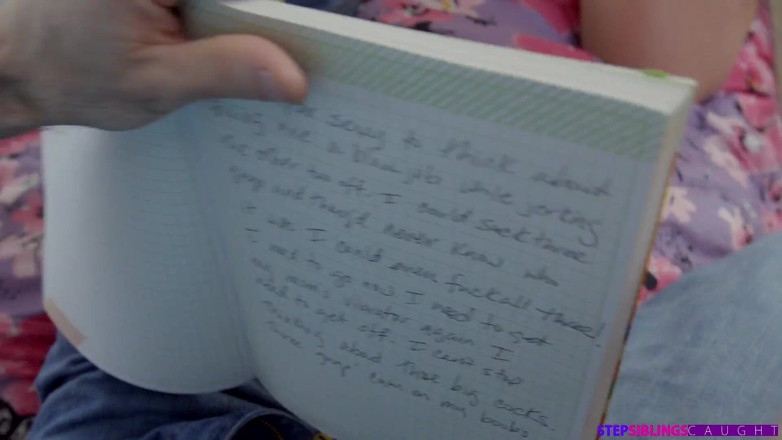 sexy to think about
me a blow job while jerking
the other two off. I could suck three
guys and never know who
I could even fuck all three!
I need to go now I need to get
my mom's vibrator again I
need to get off. I can't stop
thinking about those big cocks.
guys' cum on my boobs
STEPSIBLINGSCAUGHT